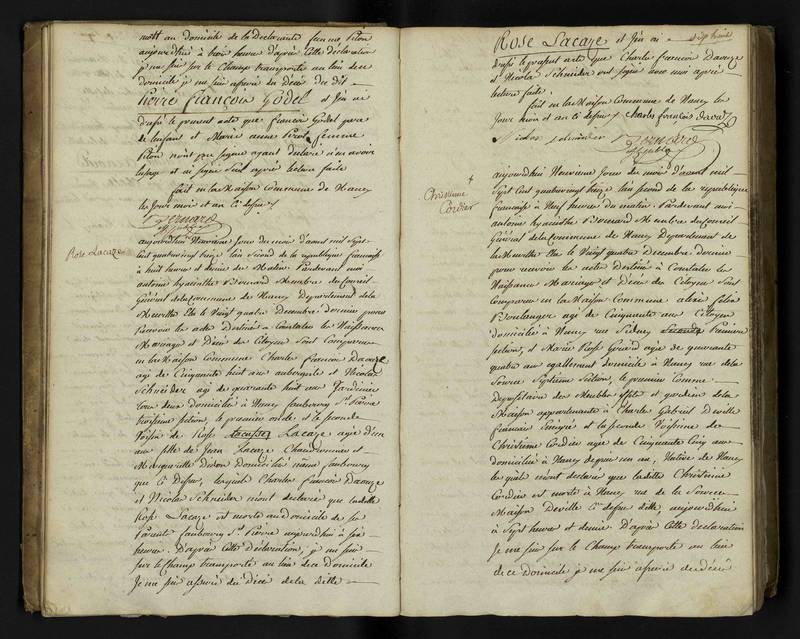 mort au domicile de la Declarante femme Piton
aujourdhui à trois heures d'après Cette déclaration
je me suis sur le Champ transporté au lieu de ce
domicile je me suis assuré du Décès du dit
Pierre François Godel et j'en ai
dressé le present acte que francois Godel pere
de lenfant et Marie anne Pirot femme
Piton n'ont pas signe ayant declaré n'en avoir
lusage et ai signé Seul après lecture faite
fait en la Maison commune de Nancy
les Jour mois et an ci dessus
Bernard
Rose Lacaze
aujourdhui Neuvieme Jour du mois d'avril mil Sept
Cent quatrevingt treize lan Second de la république francaise
à huit heures et demie du Matin Pardevant moi
antoine hyacinthe Bernard Membre du Conseil
Général de la Commune de Nancy Departement de la
Meurthe Elu le Vingt quatre Decembre dernier pour
Recevoir les actes Destinés a Constater les Naissances
Mariages et Décès des Citoyens Sont Comparus
en la Maison Commune Charles francois Davoze
agé de Cinquante huit ans aubergiste et Nicolas
Schneider agé de quarante huit ans Jardinier
tous deux domiciliés à Nancy faubourg St. Pierre
troisieme section, le premier oncle et le second
Voisin de Rose Lacaze agée d'un
an fille de Jean Lacaze Chaudronnier et
Marguerite Dodon Domiciliés même faubourg
que ci Dessus, lesquels Charles francois Davoze
et Nicolas Schneider m'ont declaré que ladite
Rose Lacaze est morte au domicile de ses
Parents faubourg St. Pierre aujourdhui à six
heures. D'après Cette Déclaration, je me suis
sur le Champ transporté au lieu de ce domicile
Je me suis assuré du Décès de la ditte
Rose Lacaze et j'en ai
dressé le present acte que Charles francois Davoze
et Nicolas Schneider ont signé avec moi après
lecture faite.
fait en la Maison Commune de Nancy les
Jour mois et an ci dessus / Charles francois davoze
Nicolas schneider Bernard
Christinne
Cordier
aujourdhui Neuvieme Jour du mois d'avril mil
Sept Cent quatrevingt treize lan second de la république
francaise à Neuf heures du matin. Pardevant moi
antoine hyacinthe Bernard Membre du Conseil
Général de la Commune de Nancy Departement de
la Meurthe Elu le Vingt quatre Decembre dernier
pour recevoir les actes Destinés à Constater les
Naissances Mariages et Décès des Citoyens Sont
Comparus en la Maison Commune
Boulanger agé de Cinquante ans Citoyen
domicilié à Nancy rue Sidney Seconde Premiere
section, et Marie Rose Girard agée de quarante
quatre ans egallement domiciliée à Nancy rue de la
Source Septieme Section, le premier Comme
Depositaire des Meubles et gardien de la
Maison appartenante à Charles Gabriel Deville
francais Emigré et la seconde Voisinne de
Christinne Cordier agée de Cinquante Cinq ans
domiciliée à Nancy depuis un an, Native de Nancy
lesquels m'ont declaré que ladite Christinne
Cordier est morte à Nancy rue de la Source
Maison Deville ci dessus ditte, aujourdhui
à Sept heures et demie D'après Cette déclaration
Je me suis sur le Champ transporté au lieu
de ce domicile je me suis assuré du décès